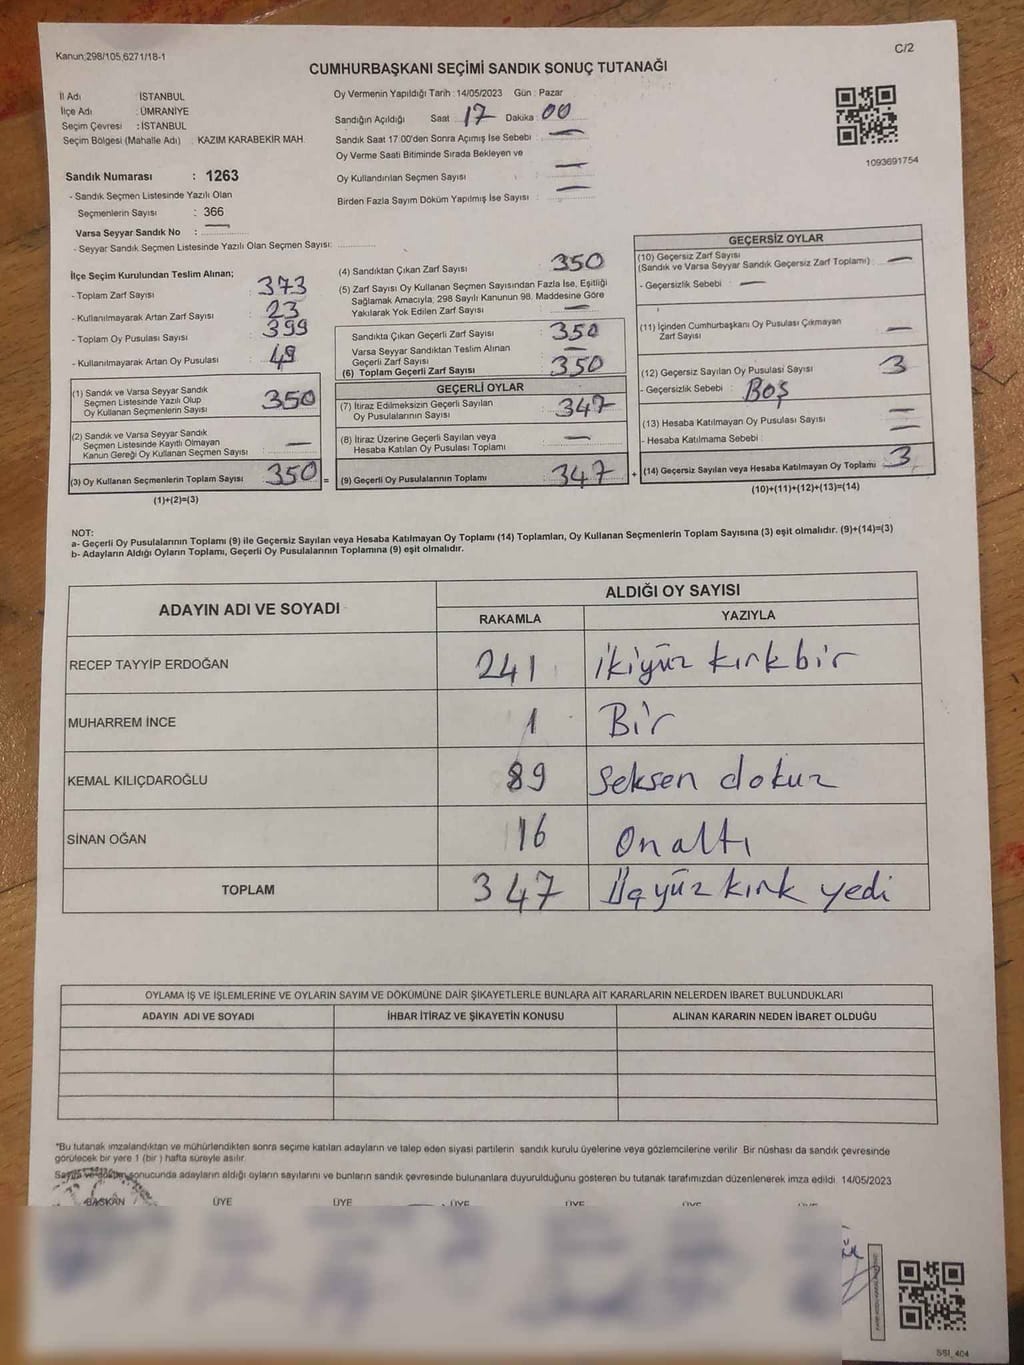 Kanun;298/105,6271/18-1
C/2
CUMHURBAŞKANI SEÇİMİ SANDIK SONUÇ TUTANAĞI
İl Adı : İSTANBUL
İlçe Adı : ÜMRANİYE
Seçim Çevresi : İSTANBUL
Seçim Bölgesi (Mahalle Adı) : KAZIM KARABEKİR MAH.
Sandık Numarası : 1263
- Sandık Seçmen Listesinde Yazılı Olan
Seçmenlerin Sayısı : 366
Varsa Seyyar Sandık No : —
- Seyyar Sandık Seçmen Listesinde Yazılı Olan Seçmen Sayısı:
Oy Vermenin Yapıldığı Tarih : 14/05/2023 Gün : Pazar
Sandığın Açıldığı Saat 17 Dakika : 00
Sandık Saat 17:00'den Sonra Açımış İse Sebebi : —
Oy Verme Saati Bitiminde Sırada Bekleyen ve
Oy Kullandırılan Seçmen Sayısı : —
Birden Fazla Sayım Döküm Yapılmış İse Sayısı : —
1093691754
İlçe Seçim Kurulundan Teslim Alınan;
- Toplam Zarf Sayısı : 373
- Kullanılmayarak Artan Zarf Sayısı : 23
- Toplam Oy Pusulası Sayısı : 399
- Kullanılmayarak Artan Oy Pusulası : 49
(1) Sandık ve Varsa Seyyar Sandık
Seçmen Listesinde Yazılı Olup
Oy Kullanan Seçmenlerin Sayısı : 350
(2) Sandık ve Varsa Seyyar Sandık
Seçmen Listesinde Kayıtlı Olmayan
Kanun Gereği Oy Kullanan Seçmen Sayısı : —
(3) Oy Kullanan Seçmenlerin Toplam Sayısı : 350 =
(1)+(2)=(3)
(4) Sandıktan Çıkan Zarf Sayısı : 350
(5) Zarf Sayısı Oy Kullanan Seçmen Sayısından Fazla İse, Eşitliği
Sağlamak Amacıyla; 298 Sayılı Kanunun 98. Maddesine Göre
Yakılarak Yok Edilen Zarf Sayısı : —
Sandıkta Çıkan Geçerli Zarf Sayısı : 350
Varsa Seyyar Sandıktan Teslim Alınan
Geçerli Zarf Sayısı : —
(6) Toplam Geçerli Zarf Sayısı : 350
GEÇERLİ OYLAR
(7) İtiraz Edilmeksizin Geçerli Sayılan
Oy Pusulalarının Sayısı : 347
(8) İtiraz Üzerine Geçerli Sayılan veya
Hesaba Katılan Oy Pusulası Toplamı : —
(9) Geçerli Oy Pusulalarının Toplamı : 347 +
GEÇERSİZ OYLAR
(10) Geçersiz Zarf Sayısı
(Sandık ve Varsa Seyyar Sandık Geçersiz Zarf Toplamı) : —
- Geçersizlik Sebebi : —
(11) İçinden Cumhurbaşkanı Oy Pusulası Çıkmayan
Zarf Sayısı : —
(12) Geçersiz Sayılan Oy Pusulası Sayısı : 3
- Geçersizlik Sebebi : BOŞ
(13) Hesaba Katılmayan Oy Pusulası Sayısı : —
- Hesaba Katılmama Sebebi : —
(14) Geçersiz Sayılan veya Hesaba Katılmayan Oy Toplamı : 3
(10)+(11)+(12)+(13)=(14)
NOT:
a- Geçerli Oy Pusulalarının Toplamı (9) ile Geçersiz Sayılan veya Hesaba Katılmayan Oy Toplamı (14) Toplamları, Oy Kullanan Seçmenlerin Toplam Sayısına (3) eşit olmalıdır. (9)+(14)=(3)
b- Adayların Aldığı Oyların Toplamı, Geçerli Oy Pusulalarının Toplamına (9) eşit olmalıdır.
ADAYIN ADI VE SOYADI ALDIĞI OY SAYISI
RAKAMLA YAZIYLA
RECEP TAYYİP ERDOĞAN 241 ikiyüz kırkbir
MUHARREM İNCE 1 Bir
KEMAL KILIÇDAROĞLU 89 Seksen dokuz
SİNAN OĞAN 16 Onaltı
TOPLAM 347 Üçyüz kırk yedi
OYLAMA İŞ VE İŞLEMLERİNE VE OYLARIN SAYIM VE DÖKÜMÜNE DAİR ŞİKAYETLERLE BUNLARA AİT KARARLARIN NELERDEN İBARET BULUNDUKLARI
ADAYIN ADI VE SOYADI İHBAR İTİRAZ VE ŞİKAYETİN KONUSU ALINAN KARARIN NEDEN İBARET OLDUĞU
*Bu tutanak imzalandıktan ve mühürlendikten sonra seçime katılan adayların ve talep eden siyasi partilerin sandık kurulu üyelerine veya gözlemcilerine verilir. Bir nüshası da sandık çevresinde
görülecek bir yere 1 (bir) hafta süreyle asılır.
Sayım ve döküm sonucunda adayların aldığı oyların sayılarını ve bunların sandık çevresinde bulunanlara duyurulduğunu gösteren bu tutanak tarafımızdan düzenlenerek imza edildi. 14/05/2023
BAŞKAN ÜYE ÜYE ÜYE ÜYE ÜYE ÜYE
SSI_404